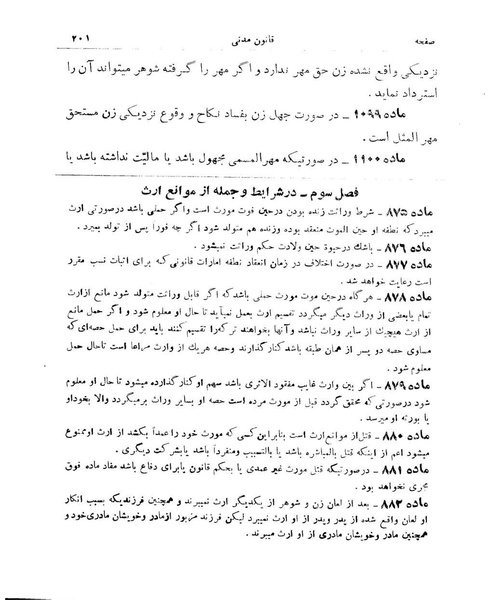 صفحه قانون مدنی ۲۰۱
نزدیکی واقع نشده زن حق مهر ندارد و اگر مهر را گرفته شوهر میتواند آن را
استرداد نماید .
ماده ۱۰۹۹ ـ در صورت جهل زن بفساد نکاح و وقوع نزدیکی زن مستحق
مهر المثل است .
ماده ۱۱۰۰ ـ در صورتیکه مهر المسمی مجهول باشد یا مالیّت نداشته باشد یا
فصل سوم ـ در شرایط و جمله از موانع ارث
ماده ۸۷۵ ـ شرط وراثت زنده بودن در حین فوت مورث است و اگر حملی باشد در صورتی ارث
میبرد که نطفه او حین الموت منعقد بوده و زنده هم متولد شود اگر چه فورا پس از تولد بمیرد .
ماده ۸۷۶ ـ باشك در حیوة حین ولادت حکم وراثت نمیشود .
ماده ۸۷۷ ـ در صورت اختلاف در زمان انعقاد نطفه امارات قانونی که برای اثبات نسب مقرر
است رعایت خواهد شد .
ماده ۸۷۸ ـ هر گاه در حین موت مورث حملی باشد که اگر قابل وراثت متولد شود مانع از ارث
تمام یا بعضی از وراث دیگر میگردد تقسیم ارث بعمل نمیآید تا حال او معلوم شود و اگر حمل مانع
از ارث هیچیك از سایر وراث نباشد و آنها بخواهند ترکه را تقسیم کنند باید برای حمل حصه‌ای که
مساوی حصه دو پسر از همان طبقه باشد کنار گذارند و حصه هر یك از وراث مراعا است تا حال حمل
معلوم شود .
ماده ۸۷۹ ـ اگر بین وراث غایب مفقود الاثری باشد سهم او کنار گذارده میشود تا حال او معلوم
شود در صورتی که محقق گردد قبل از مورث مرده است حصه او بسایر وراث بر میگردد والا بخود او
یا بورثه او میرسد .
ماده ۸۸۰ ـ قتل از موانع ارث است بنابر این کسی که مورث خود را عمداً بکشد از ارث او ممنوع
میشود اعم از اینکه قتل بالمباشره باشد یا بالتسبیب و منفرداً باشد یا بشرکت دیگری .
ماده ۸۸۱ ـ در صورتیکه قتل مورث غیر عمدی یا بحکم قانون یا برای دفاع باشد مفاد ماده فوق
مجری نخواهد بود .
ماده ۸۸۲ ـ بعد از لعان زن و شوهر از یکدیگر ارث نمیبرند و همچنین فرزندیکه بسبب انکار
او لعان واقع شده از پدر و پدر از او ارث نمیبرد لیکن فرزند مزبور از مادر و خویشان مادری خود و
همچنین مادر و خویشان مادری از او ارث میبرند .